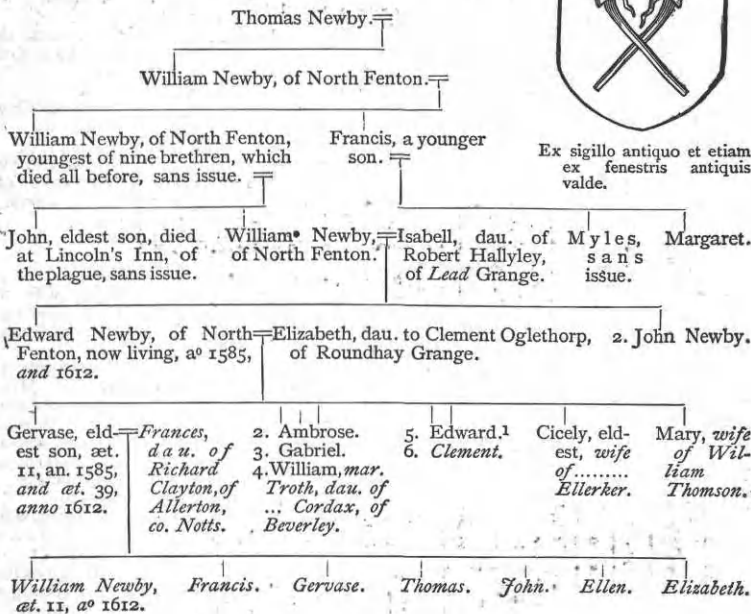 Thomas Newby.
William Newby, of North Fenton.
William Newby, of North Fenton,
youngest of nine brethren, which
died all before, sans issue.
Francis, a younger
son.
Ex sigillo antiquo et etiam
ex fenestris antiquis
valde.
John, eldest son, died
at Lincoln's Inn, of
the plague, sans issue.
William Newby,
of North Fenton.
Isabell, dau. of
Robert Hallyley,
of Lead Grange.
Myles,
sans
issue.
Margaret.
Edward Newby, of North
Fenton, now living, aº 1585,
and 1612.
Elizabeth, dau. to Clement Oglethorp,
of Roundhay Grange.
2. John Newby.
Gervase, eld-
est son, æt.
11, an. 1585,
and æt. 39,
anno 1612.
Frances,
dau. of
Richard
Clayton, of
Allerton,
co. Notts.
2. Ambrose.
3. Gabriel.
4. William, mar.
Troth, dau. of
... Cordax, of
Beverley.
5. Edward.¹
6. Clement.
Cicely, eld-
est, wife
of.........
Ellerker.
Mary, wife
of Wil-
liam
Thomson.
William Newby,
æt. 11, aº 1612.
Francis.
Gervase.
Thomas.
John.
Ellen.
Elizabeth.